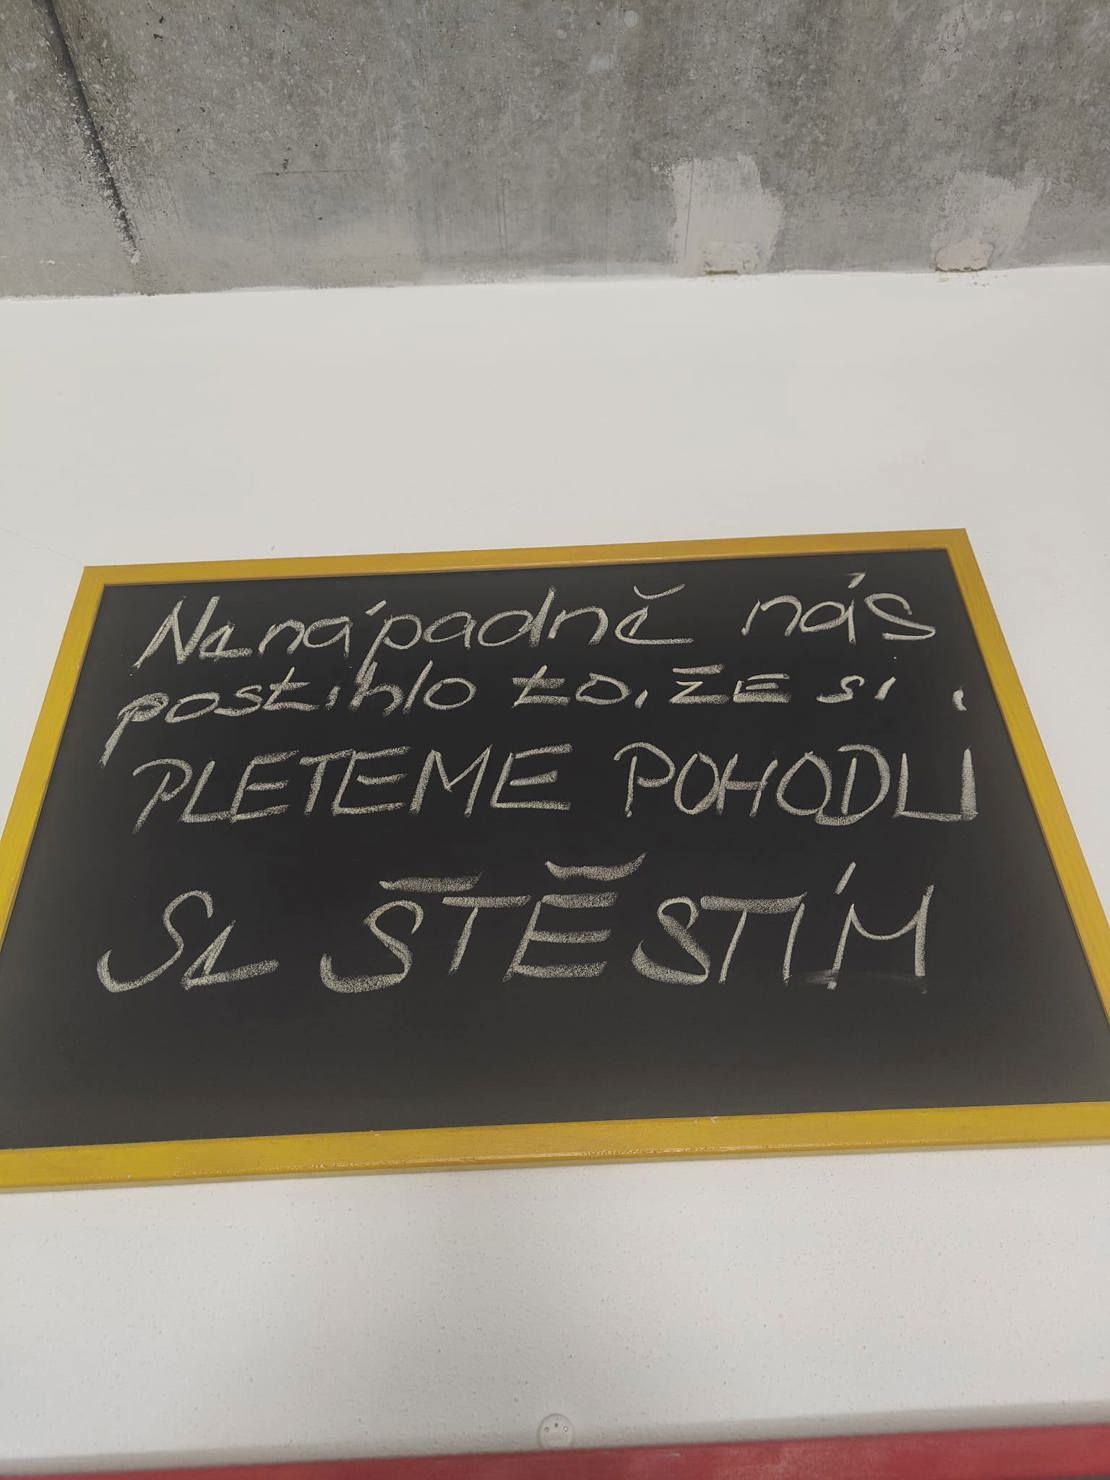 Nenápadně nás
postihlo to, že si
PLETEME POHODLÍ
SE ŠTĚSTÍM